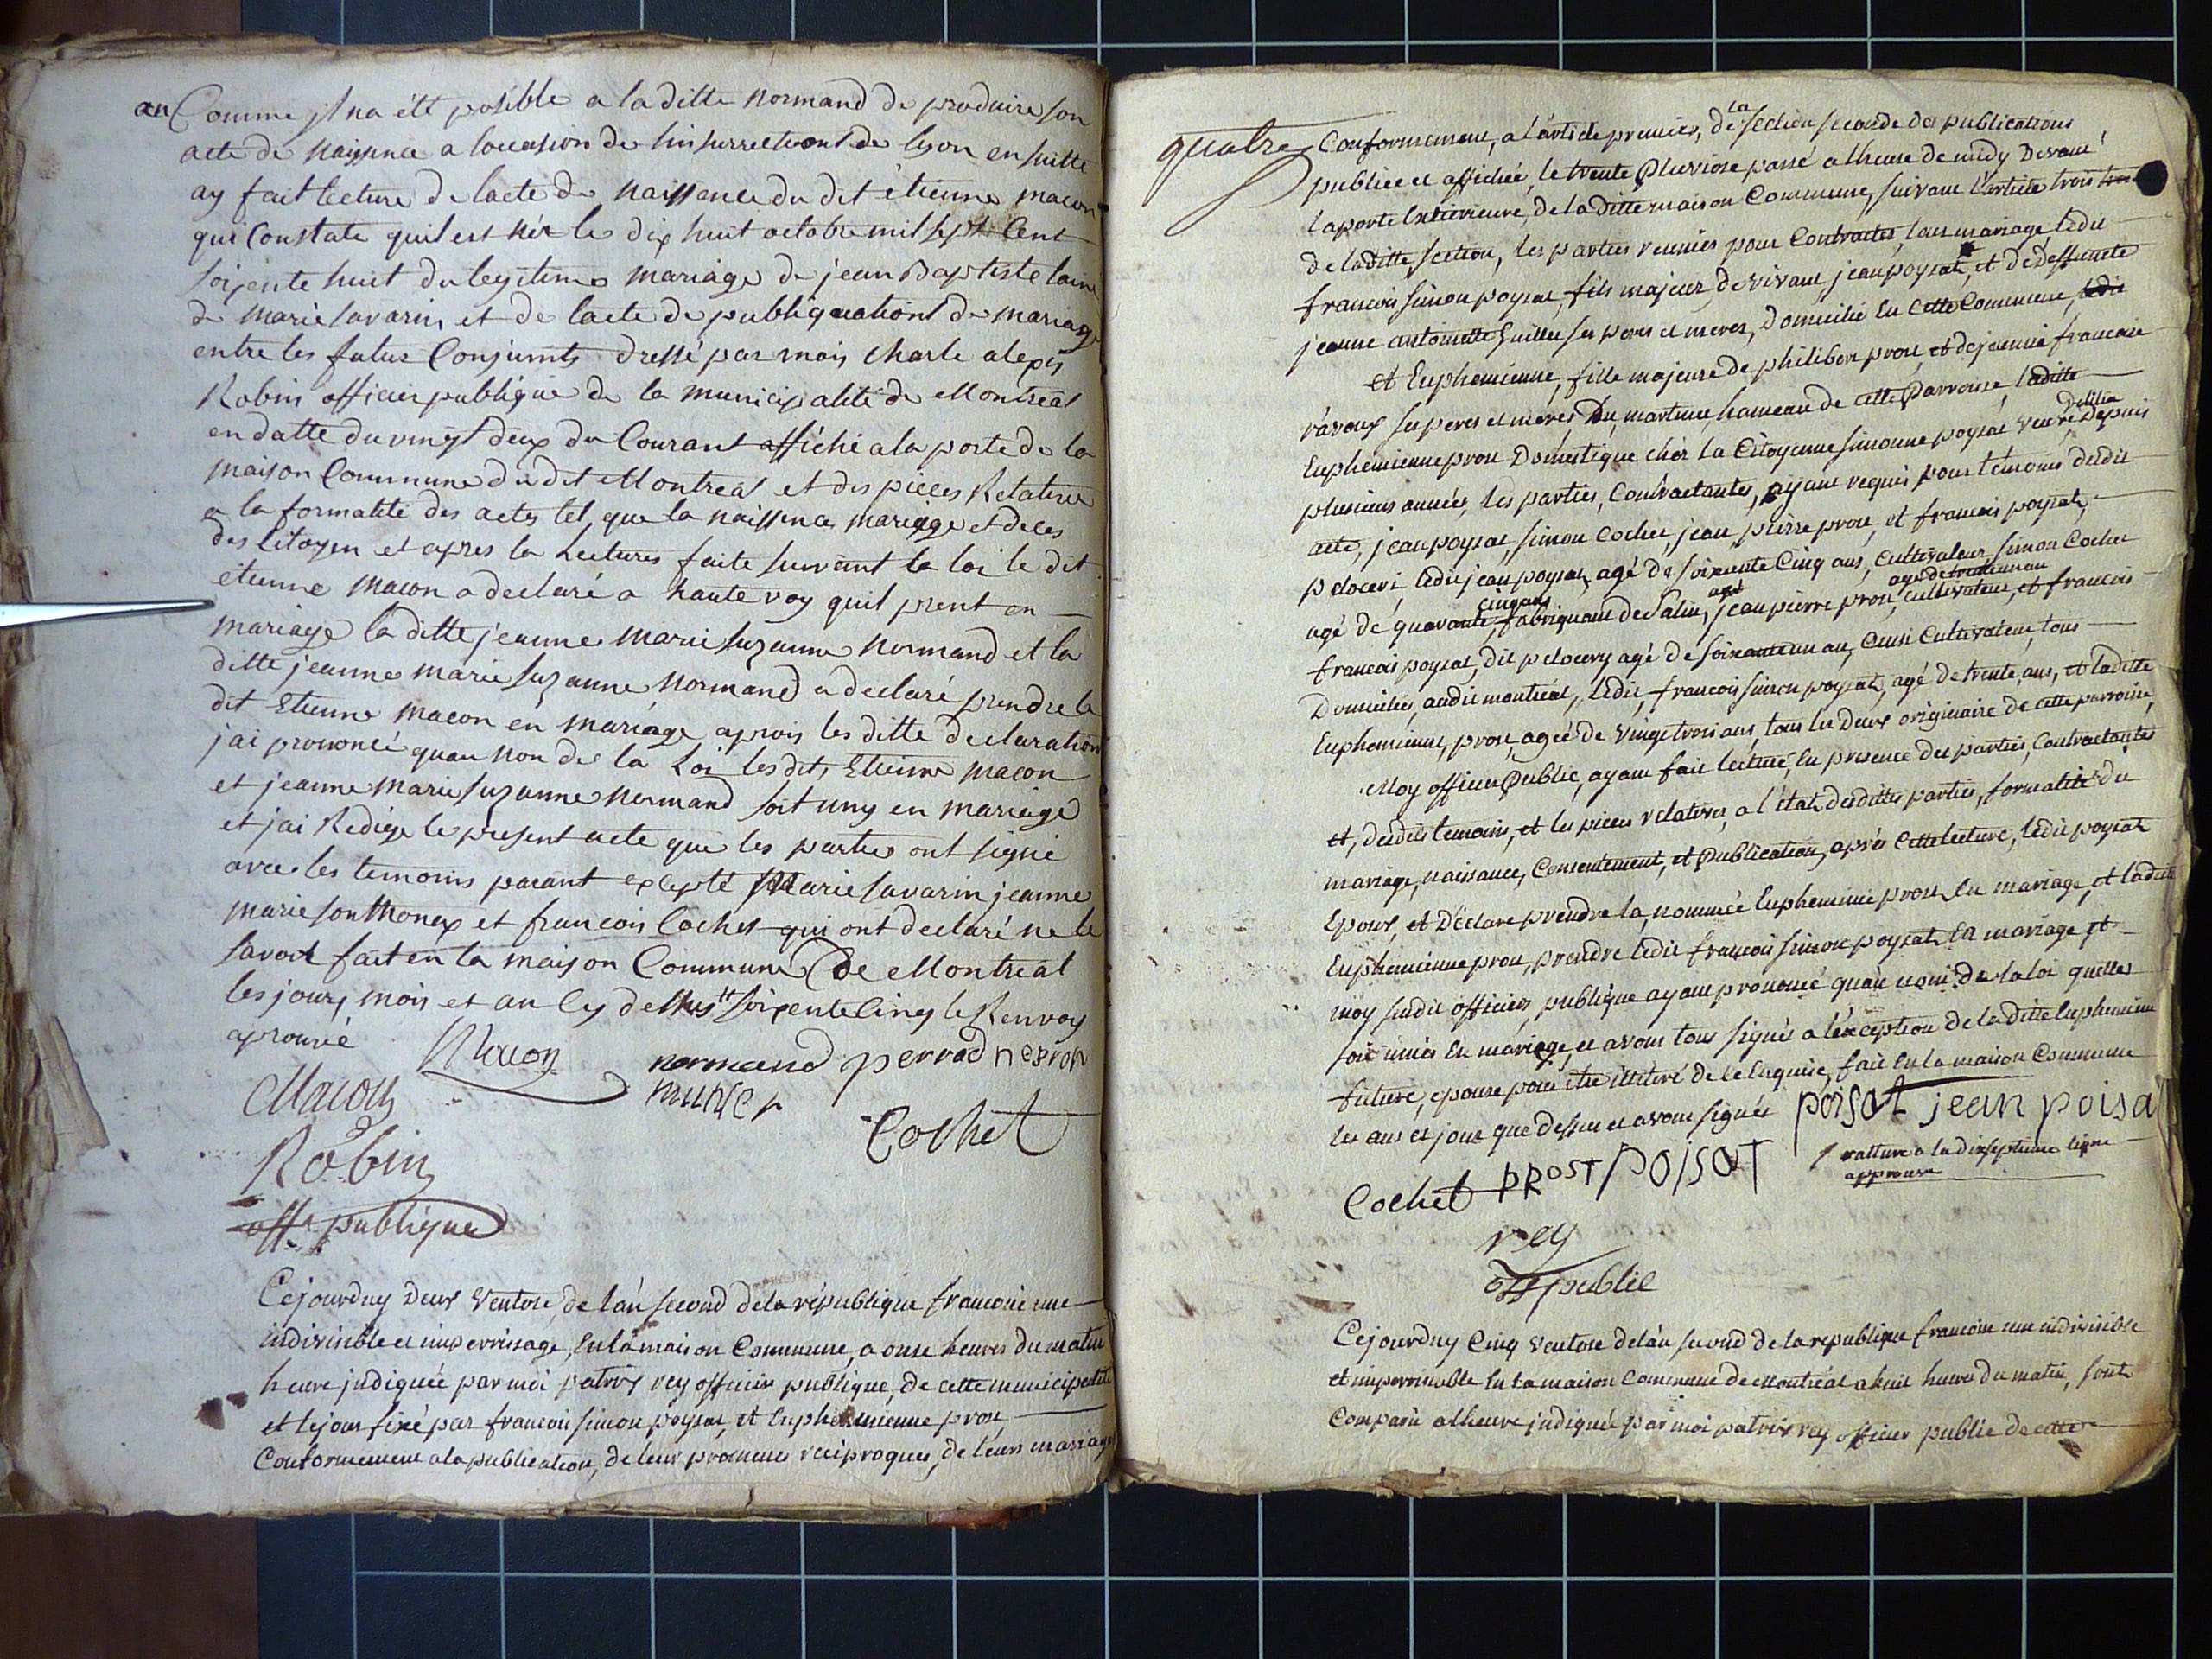 an Comme il na été posible a la ditte normand de produire son
acte de naissence a locasion de linsurrectiont de lyon ensuitte
ay fait lecture de lacte de naissence du dit étienne macon
qui Constate quil est née le dix huit octobre mil sept Cent
soixente huit du legitime mariage de jean Baptiste
de marie savarin et de lacte de publiquationt de mariage
entre les futur Conjuints dressé par mois charle alexis
Robin officier publique de la municipalité de Montreal
en datte du vingt deux du Courant affiché a la porte de la
maison Commune du dit Montreal et des pieces Relative
a la formalité des actes tel que la naissence mariage et deces
des Citoyen et apres la Lectures faite suivant la loi le dit
etienne macon a declaré a haute voy quil prent en
mariage la ditte jeanne marie suzanne normand et la
ditte jeanne marie suzanne normand a declaré prendre le
dit Etienne macon en mariage aprois les ditte declaration
jai prononcé quau non de la Loi les dit Etienne macon
et jeanne marie suzanne normand soit uny en mariage
et jai Redigé le present acte que les parties ont signé
avec les temoins parant excepté Marie savarin jeanne
marie sonthonax et francois Cochet qui ont declaré ne le
savoir fait en la maison Commune de Montreal
les jours mois et an Cy dessus soixente Cinq le Renvoy
aprouvé
Macon normand perrod nesron
Macon munier Cochet
Robin
offr publique
Cejourdhuy Deux Ventose, de lan second de la république francoise une
indivisible et imperrisage, En la maison Commune, a onse heures du matin
heure jndiquée par moi patrix rey officier publique, de cette municipalité
et le jour fixé par francois simon poysat, et Euphemienne prost
Conformement a la publication, de leur promesses réciproques, de leurs mariage
quatre Conformement, a l'article premier, de la section seconde des publications
publiée et affichée, le trente Pluviose passé a lheure de midy Devant
la porte Extérieure, de la ditte maison Commune, suivant l'article trois
de la ditte section, les parties reunies pour Contracter, leur mariage ledit
francois simon poysat, fils majeur, de vivant, jean poysat, et de deffuncte
jeanne antoinette Guillet ses peres et meres, Domicilié En cette Commune
et Euphemienne, fille majeure de philibert prost, et de jeanne francoise
ravoux ses peres et meres Du martinet, hameau de cette Parroisse, laditte
Euphemienne prost Doméstique chéz la Citoyenne simonne poysat veuve Depuis
plusieurs années, les parties, Contractantes, ayant requis pour témoins dudit
acte, jean poysat, simon Cochet, jean pierre prost, et francois poysat,
ledit jean poysat, agé de soixente Cinq ans, Cultivateur, simon Cochet
agé de quarante Cinq ans, fabriquant de salin, jean pierre prost, agé de trente un an cultivateur, et francois
francois poysat, dit agé de soixante un an, aussi Cultivateur, tous
Domiciliés, audit montréal, ledit, francois simon poysat, agé de trente, ans, et laditte
Euphemienne, prost, ageé de vingt trois ans, tous les Deux originaire de cette parroisse,
Moy officier Public, ayant fait lecture, En presence des parties, Contractantes
et, desdits temoins, et les pieces relatives, a l'état desdittes parties, formalité du
mariage, naissance, Consentement, et Publication, aprés cette lecture, ledit poysat
Epoux, et Déclare prendre la, nommée Euphemine prost, En mariage, et laditte
Euphemienne prost, prendre ledit francois simon poysat En mariage, et
moy susdit officier, publique ayant prononcé quau nom de la loi quelles
sont uniés En mariage, et avons tous signés a l'éxception de laditte Euphemienne
future, epouse pour etre illiteré de ce Enquise, fait En la maison Commune
les ans et jour que dessus et avons signés poisat jean poisa
Cochet PROST POISAT rature a la dixseptieme ligne
approuvé
rey
off public
Cejourdhuy Cinq Ventose de lan second de la republique francoise une indivisible
et imperrissable En la maison Commune de Montréal a huit heures du matin, sont
Comparu a lheure jndiquée par moi patrix rey officier public de cette